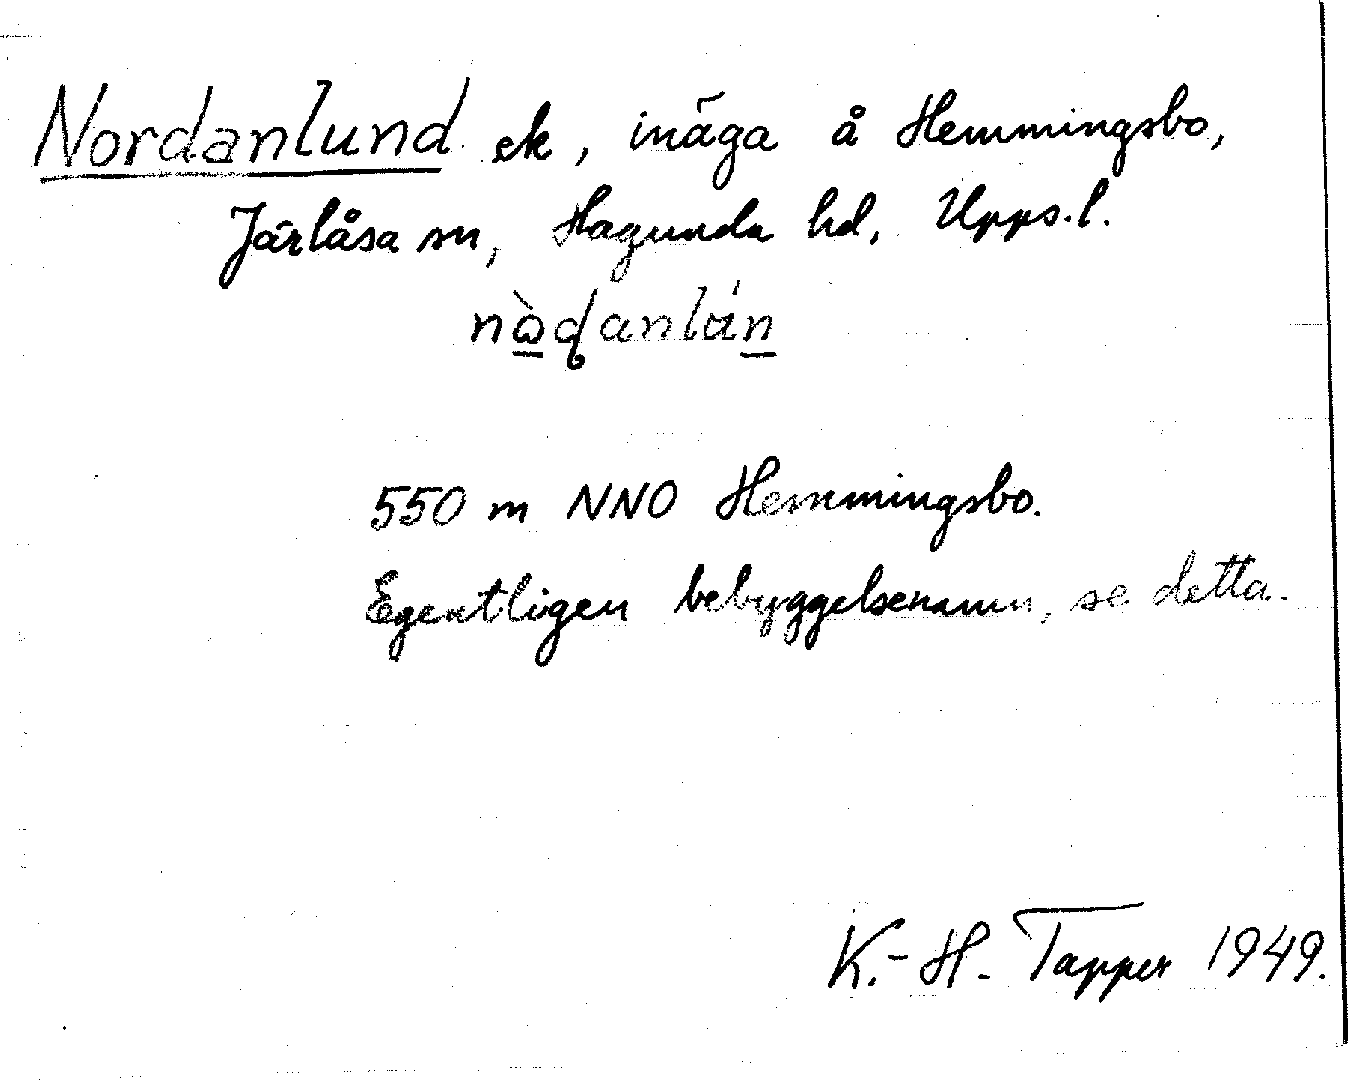 Nordanlund ek, inäga å Hemmingsbo,
Järlåsa sn, Hagunda hd, Upps.l.
550 m NNO Hemmingsbo.
Egentligen bebyggelsenamn, se detta.
K.-H. Tapper 1949.